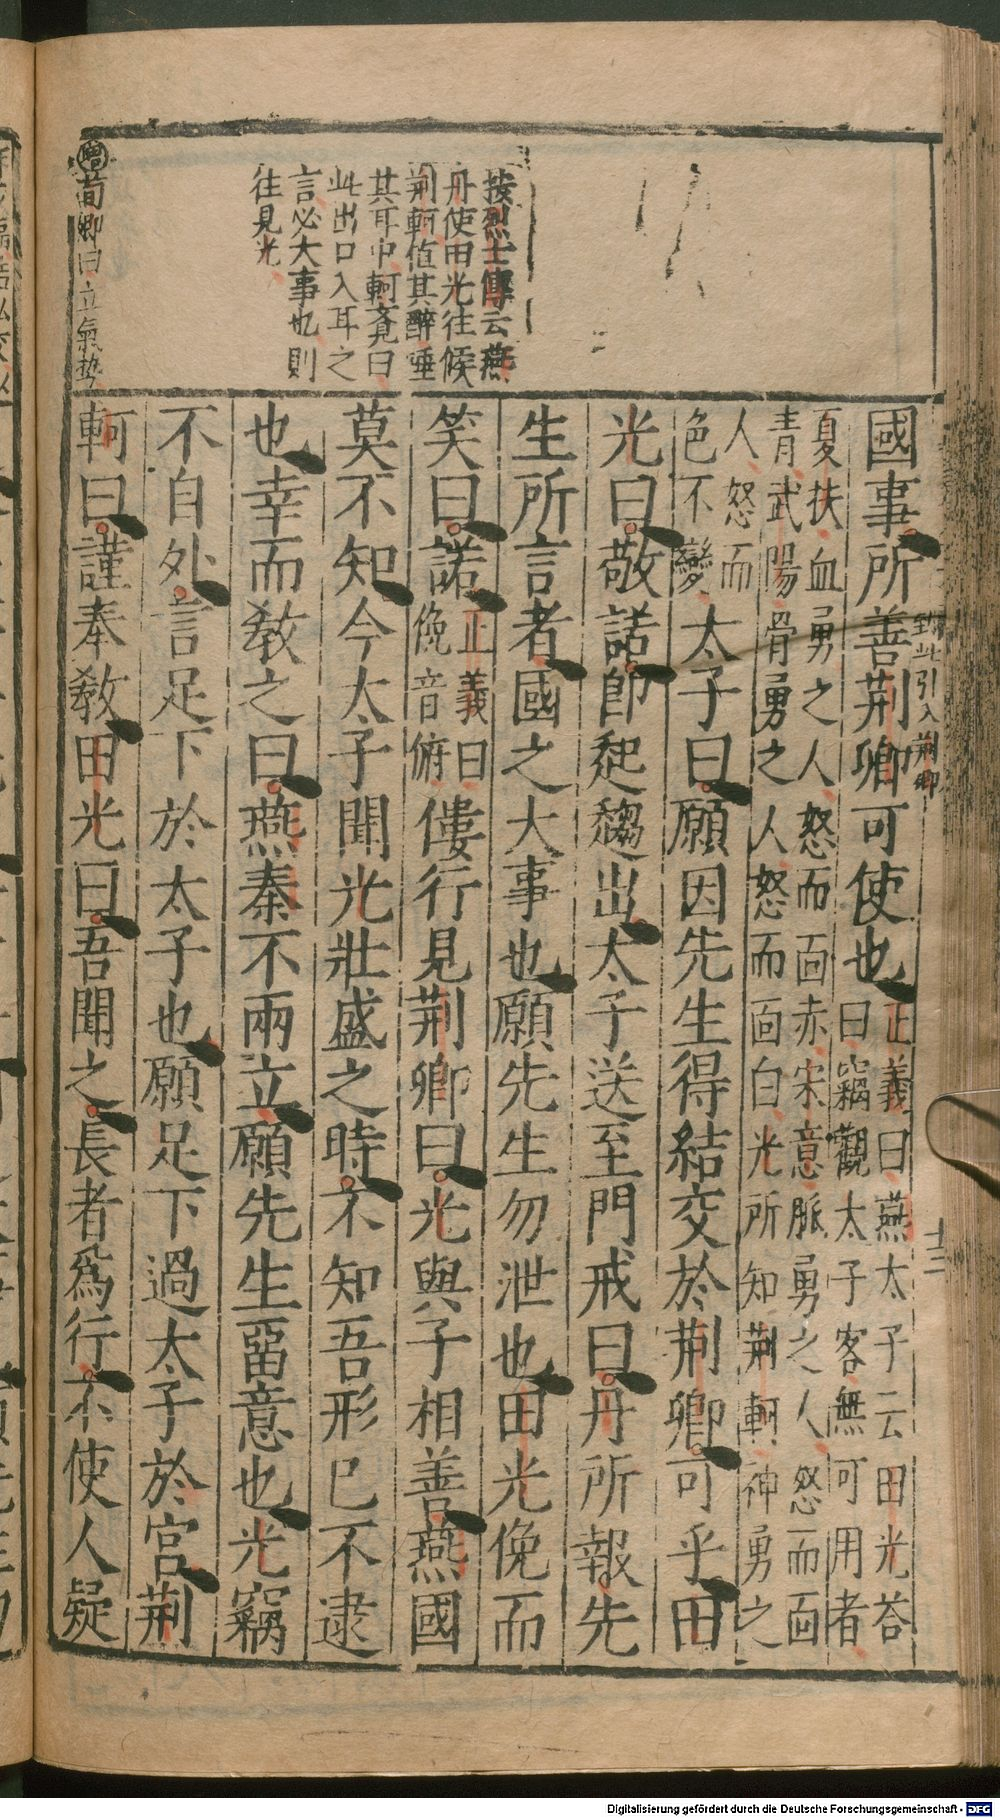 國事所善荆卿可使也正義曰燕太子云田光荅曰竊觀太子客無可用者
夏扶血勇之人怒而面赤宋意脈勇之人怒而面
青武陽骨勇之人怒而面白光所知荆軻神勇之
人怒而色不變太子曰願因先生得結交於荆卿可乎田
光曰敬諾卽起趨出太子送至門戒曰丹所報先
生所言者國之大事也願先生勿泄也田光俛而
笑曰諾正義曰俛音俯僂行見荆卿曰光與子相善燕國
莫不知今太子聞光壯盛之時不知吾形已不逮
也幸而敎之曰燕秦不兩立願先生畱意也光竊
不自外言足下於太子也願足下過太子於宮荆
軻曰謹奉敎田光曰吾聞之長者爲行不使人疑
到此引入荆卿
十二
按烈士傳云燕
丹使田光往候
荆軻值其醉唾
其耳中軻覺曰
此出口入耳之
言必大事也則
往見光
荀卿曰立氣勢
Digitalisierung gefördert durch die Deutsche Forschungsgemeinschaft - DFG